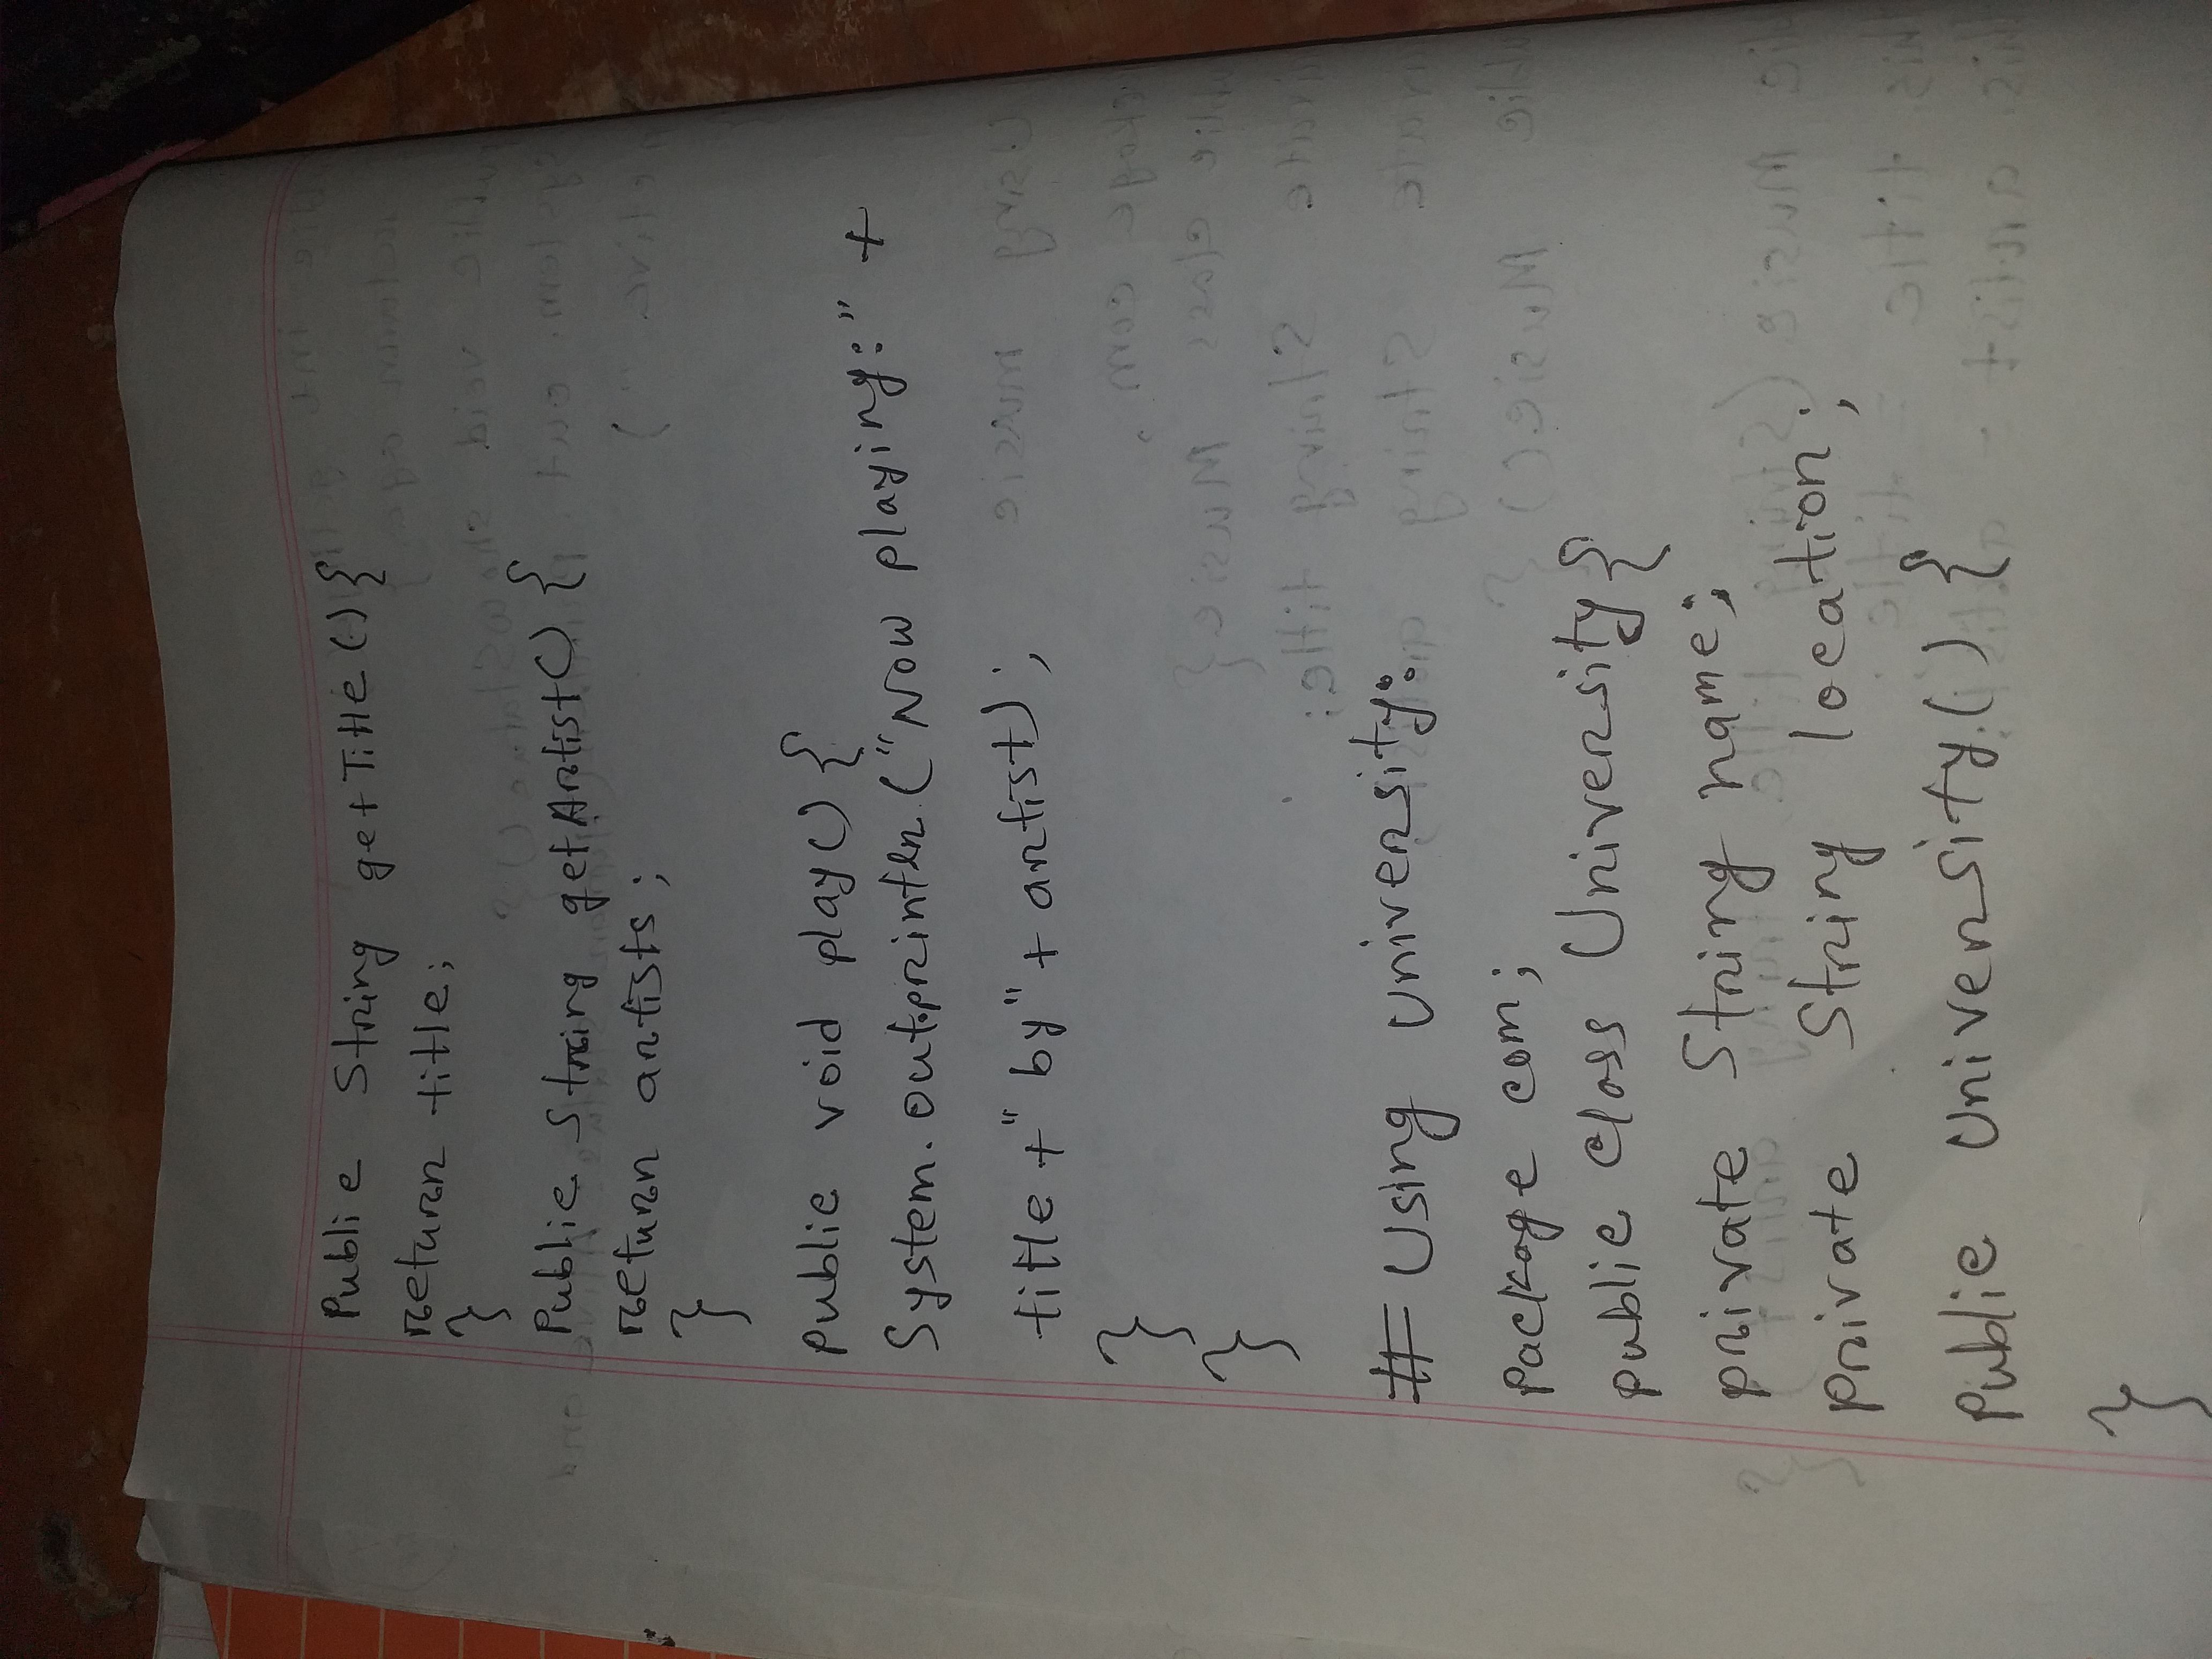 Public String getTitle() {
return title;
}
Public String getArtist() {
return artists;
}
public void play() {
System.out.println("Now playing:" +
title + " by" + artist);
}
}
# Using University:
package com;
public class University {
private String name;
private String location;
Public University() {
}